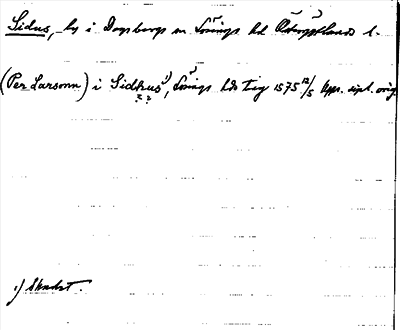 Sidus, by i Dagsbergs sn Lösings hd Östergötlands l.
(Per Larsson) i Sidhus¹⁾, Lösings hds tig 1575 12/5 Upps. dipl. orig.
? ?
1) Skadat.